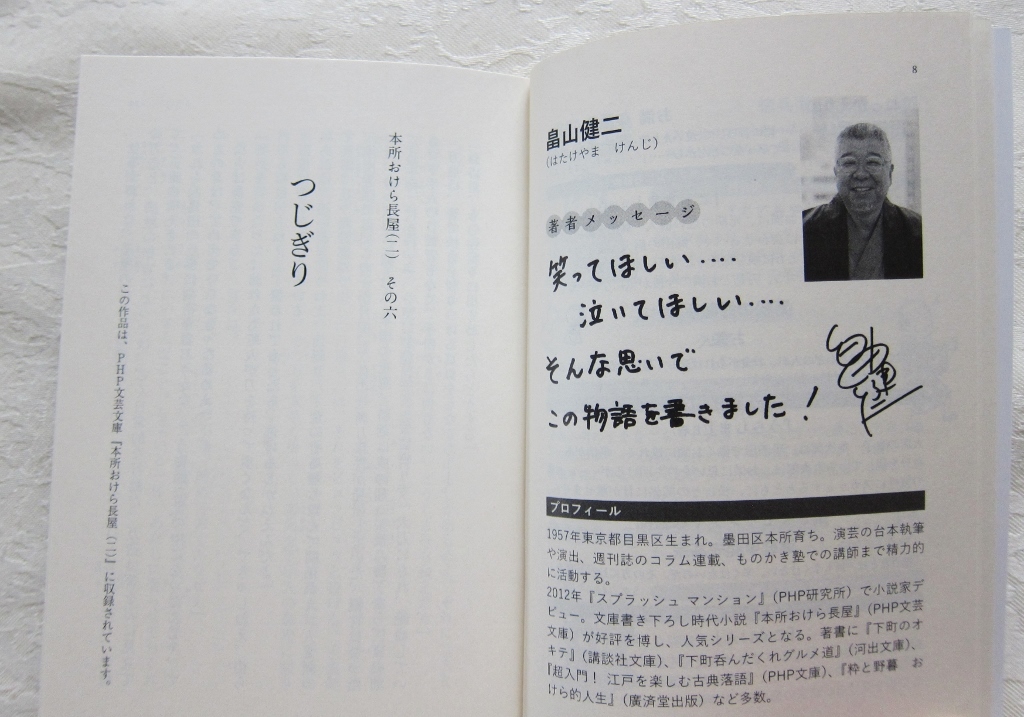 8
畠山健二
(はたけやま　けんじ)
著者メッセージ
笑ってほしい‥‥
泣いてほしい‥‥
そんな思いで
この物語を書きました！
プロフィール
1957年東京都目黒区生まれ。墨田区本所育ち。演芸の台本執筆
や演出、週刊誌のコラム連載、ものかき塾での講師まで精力的
に活動する。
2012年『スプラッシュ マンション』（PHP研究所）で小説家デ
ビュー。文庫書き下ろし時代小説『本所おけら長屋』（PHP文芸
文庫）が好評を博し、人気シリーズとなる。著書に『下町のオ
キテ』（講談社文庫）、『下町呑んだくれグルメ道』（河出文庫）、
『超入門！ 江戸を楽しむ古典落語』（PHP文庫）、『粋と野暮　お
けら的人生』（廣済堂出版）など多数。
本所おけら長屋（二）　その六
つじぎり
この作品は、ＰＨＰ文芸文庫『本所おけら長屋（二）』に収録されています。